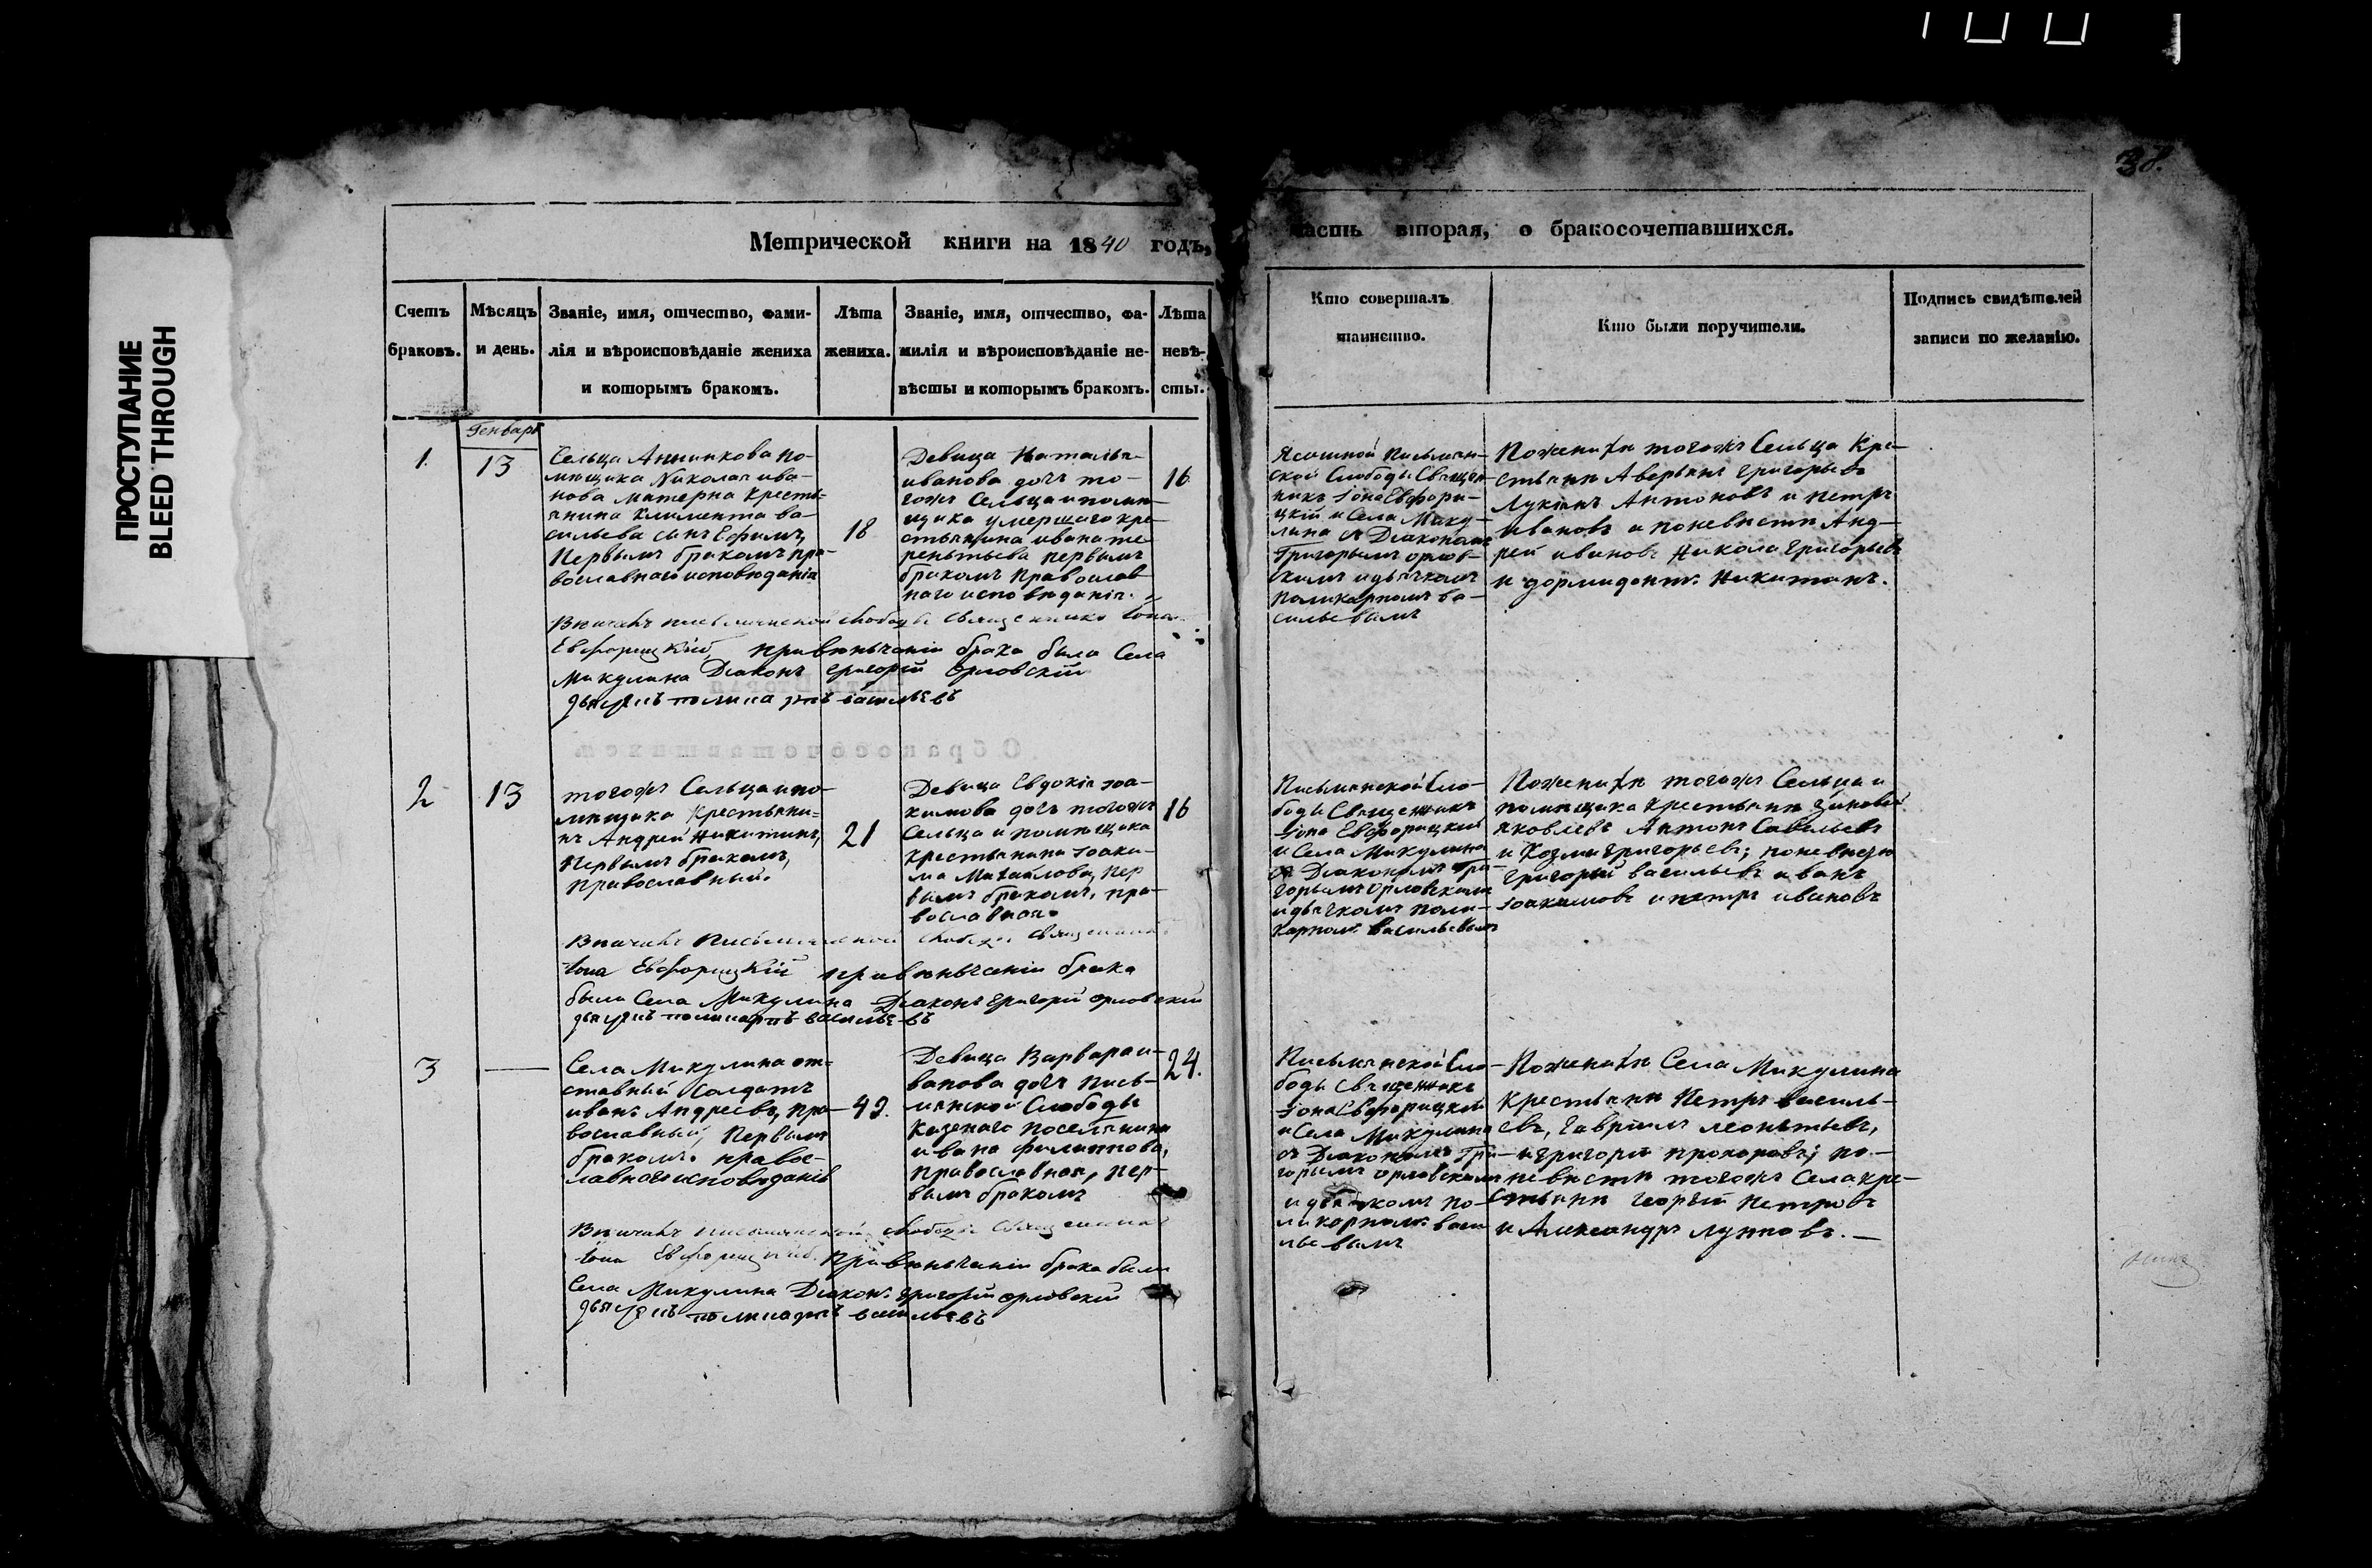 ПРОСТУПАНИЕ
BLEED THROUGH
38.
Метрической книги на 1840 годъ,
часть вторая, о бракосочетавшихся.
Счетъ браковъ.
Мѣсяцъ и день.
Званіе, имя, отчество, фами-
лія и вѣроисповѣданіе жениха
и которымъ бракомъ.
Лѣта
жениха.
Званіе, имя, отчество, фа-
милія и вѣроисповѣданіе не-
вѣсты и которымъ бракомъ.
Лѣта
невѣ-
сты.
Кто совершалъ
таинство.
Кто были поручители.
Подпись свидѣтелей
записи по желанію.
Генварь
1.
13
Сельца Анинкова по-
мѣщика Николая ива-
нова Матерна Кресть-
янина Климента ва-
сильева сынъ Ефимъ,
Первымъ бракомъ пра-
вославнаго исповѣданія
18
Девица Наталья
иванова дочь то-
гожъ Сельца и помѣ-
щика умершаго кре-
стьянина ивана те-
рентьева первымъ
бракомъ Православ-
наго исповѣданія.
16
Ясашной Письмян-
ской Слободы Священ-
никъ Iона Евфори-
цкій и Села Мику-
лина съ Діакономъ
Григорьемъ орлов-
скимъ и дьячкомъ
Поликарпомъ ва-
сильевымъ
Поженихѣ тогожъ Сельца Кре-
стьяне Аверьянъ Григорьевъ
Лукіянъ Антоновъ и Петръ
ивановъ а поневѣстѣ Анд-
рей ивановъ Никола Григорьевъ
и дормидонтъ Никитинъ.
Вѣнчалъ письмянской слободы священникъ Iона
Евфорицкій, При вѣнчаніи брака были Села
Микулина Діаконъ Григорій Орловскій
дьячекъ поликарпъ васильевъ
2
13
тогожъ Сельца и по-
мѣщика Крестьяни-
нъ Андрей Никитинъ,
Первымъ бракомъ,
Православный.
21
Девица Евдокія Iоа-
кимова дочь тогожъ
Сельца и помѣщика
Крестьянина Iоаки-
ма Михайлова, пер-
вымъ бракомъ, пра-
вославная.
16
Письмянской Сло-
боды Священникъ
Iона Евфорицкій
и Села Микулина
съ Діакономъ Гри-
горьемъ Орловскимъ
и дьячкомъ Поли-
карпомъ Васильевымъ
Поженихѣ тогожъ Сельца и
помѣщика Крестьяне Зиновей
яковлевъ Антонъ Савельевъ
и Козма Григорьевъ; поневѣстѣ
Григорій васильевъ иванъ
Iоакимовъ и петръ ивановъ
Вѣнчалъ Письмянской слободы священникъ
Iона Евфорицкій при вѣнчаніи брака
были Села Микулина Діаконъ Григорій орловскій
дьячекъ поликарпъ васильевъ
3
Села Микулина от-
ставный Солдатъ
иванъ Андреевъ, пра-
вославный, Первымъ
бракомъ. правос-
лавнаго исповѣданія
42.
Девица Варвара и-
ванова дочь Пись-
мянской Слободы
Казенаго Поселянина
ивана филиппова,
Православная, пер-
вымъ бракомъ
24.
Письмянской Сло-
боды Священникъ
Iона Евфорицкій
и Села Микулина
съ Діакономъ Гри-
горьемъ орловскимъ
и дьячкомъ По-
ликарпомъ васи-
льевымъ
Поженихѣ Села Микулина
Крестьяне Петръ василь-
евъ, Гавріилъ леонтьевъ,
и григорій прохоровъ; по-
невѣстѣ тогожъ Села кре-
стьяне георгій Петровъ
и Александръ луповъ.
Вѣнчалъ письмянской слободы священникъ
Iона Евфорицкій. При вѣнчаніи брака были
Села Микулина Діаконъ григорій орловскій
дьячекъ поликарпъ васильевъ